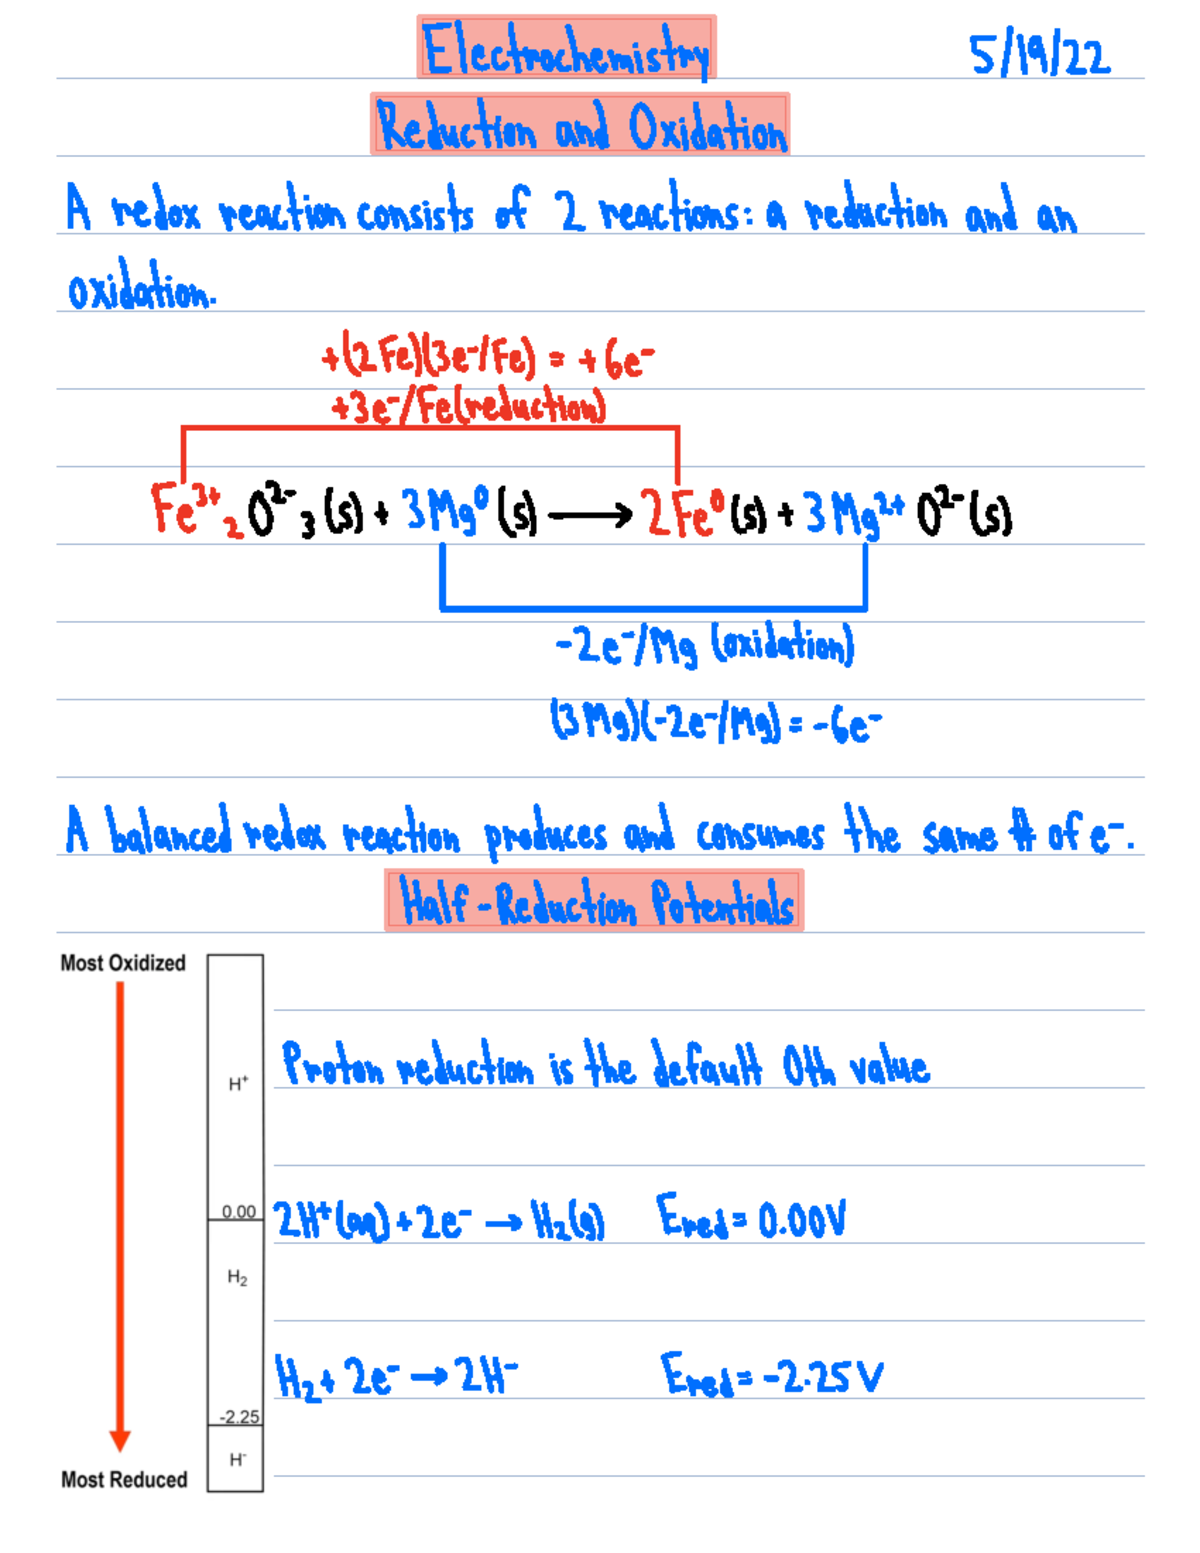 Electrochemistry 5/19/22
Reduction and Oxidation
A redox reaction consists of 2 reactions: a reduction and an
oxidation.
+(2Fe)(3e⁻/Fe) = +6e⁻
+3e⁻/Fe(reduction)
Fe³⁺₂O²⁻₃(s) + 3Mg⁰(s) → 2Fe⁰(s) + 3Mg²⁺O²⁻(s)
-2e⁻/Mg (oxidation)
(3Mg)(-2e⁻/Mg) = -6e⁻
A balanced redox reaction produces and consumes the same # of e⁻.
Half-Reduction Potentials
Most Oxidized
H⁺ Proton reduction is the default 0th value
0.00 2H⁺(aq) + 2e⁻ → H₂(g) Ered = 0.00V
H₂
H₂ + 2e⁻ → 2H⁻ Ered = -2.25V
-2.25
H⁻
Most Reduced